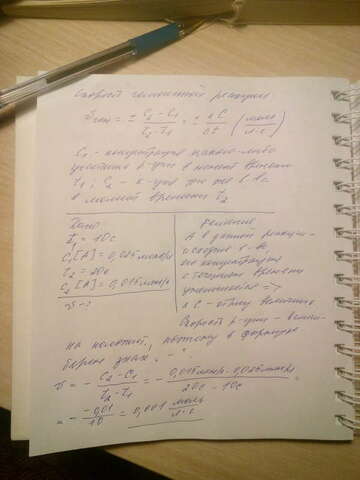 Скорость химической реакции:
υ = ± (C₂ - C₁)/(τ₂ - τ₁) = ± ΔC/Δτ (моль/л·с)
C₁ - концентрация какого-либо
участника р-ции в момент времени
τ₁, C₂ - к-ция того же в-ва
в момент времени τ₂
Дано:
τ₁ = 10с
C₁[A] = 0,026моль/л
τ₂ = 20с
C₂[A] = 0,016моль/л
υ - ?
Решение
A в данной реакции -
исходное в-во
его концентрация
с течением времени
уменьшается =>
ΔC - отриц. величина
Скорость р-ции - величи-
на положит., поэтому в формуле
берем знак "-"
υ = - (C₂ - C₁)/(τ₂ - τ₁) = - (0,016моль/л - 0,026моль/л)/(20с - 10с) =
= - (-0,01)/10 = 0,001 моль/л·с